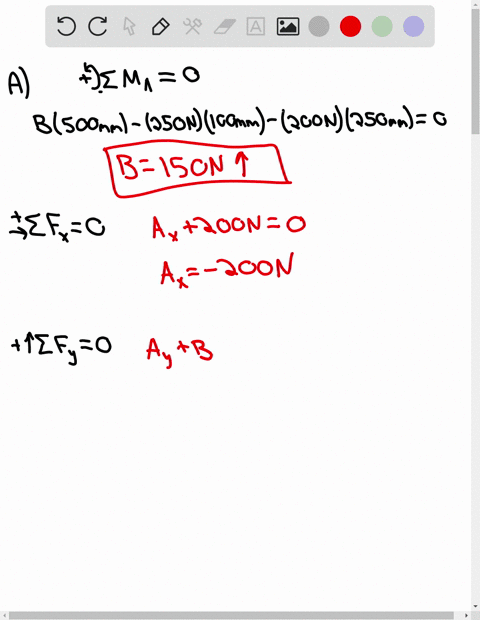 A) +) ΣM_A = 0
B(500mm) - (250N)(100mm) - (200N)(250mm) = 0
B = 150N ↑
+→ ΣF_x = 0 A_x + 200N = 0
A_x = -200N
+↑ ΣF_y = 0 A_y + B